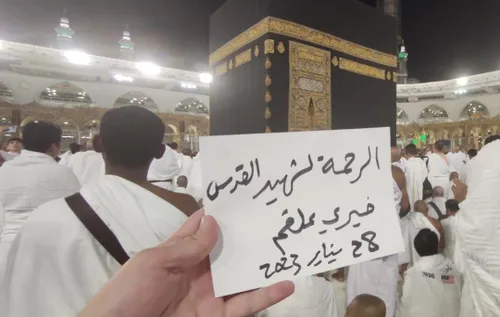 الرحمة لشهيد القدس
خيري علقم
28 يناير 2023